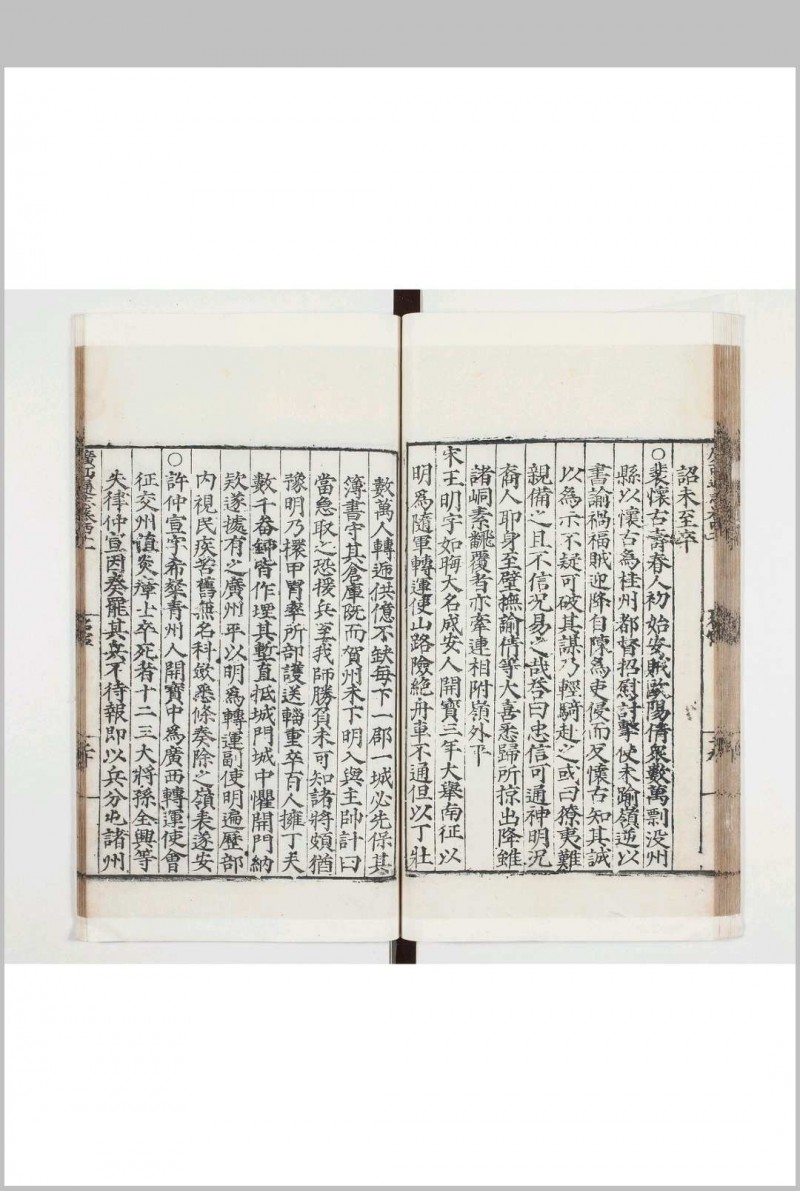 詔未至卒
○裴懷古壽春人初始安賊歐陽倩衆數萬剽没州
縣以懷古為桂州都督招慰討擊使未踰嶺逆以
書諭禍福賊迎降自陳為吏侵而反懷古知其誠
以為示不疑可破其謀乃輕騎赴之或曰獠夷難
親備之且不信况易之哉荅曰忠信可通神明况
裔人耶身至壁撫諭倩等大喜悉歸所掠出降雖
諸峒素飜覆者亦牽連相附嶺外平
宋王明字如晦大名咸安人開寶三年大舉南征以
明為隨軍轉運使山路險絶舟車不通但以丁壯
數萬人轉遞供億不缺每下一郡一城必先保其
簿書守其倉庫既而賀州未下明入與主帥計曰
當急取之恐援兵至我師勝負未可知諸將頗猶
豫明乃擐甲胄率所部護送輜重卒百人擁丁夫
數千畚鍤皆作堙其塹直抵城門城中懼開門納
欵遂據有之廣州平以明為轉運副使明遍歷部
内視民疾苦舊無名科斂悉條奏除之嶺表遂安
○許仲宣字希粲青州人開寶中為廣西轉運使會
征交州值炎瘴士卒死者十二三大將孫全興等
失律仲宣因奏罷其兵不待報即以兵分屯諸州